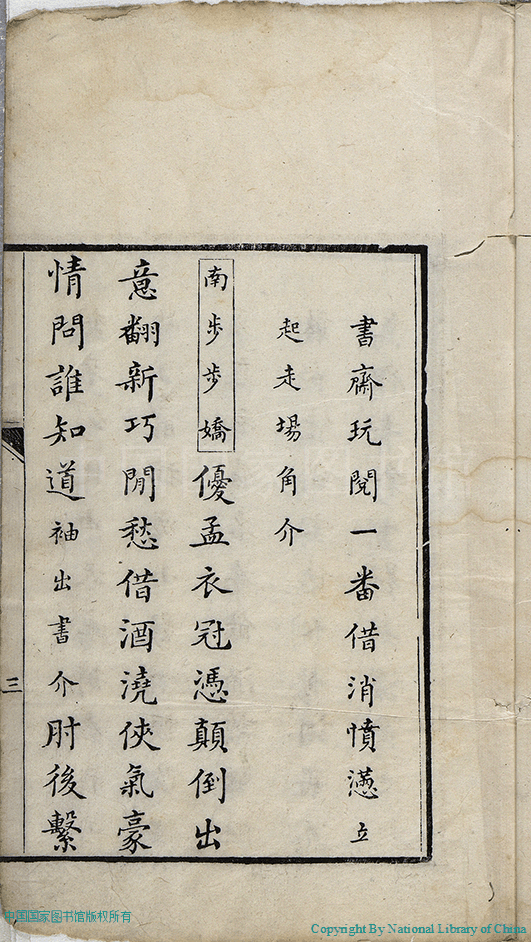 書齋玩閱一番借消憤懣立
起走場角介
南步步嬌優孟衣冠憑顛倒出
意翻新巧閒愁借酒澆俠氣豪
情問誰知道袖出書介肘後繫
三
中国国家图书馆版权所有
Copyright By National Library of China